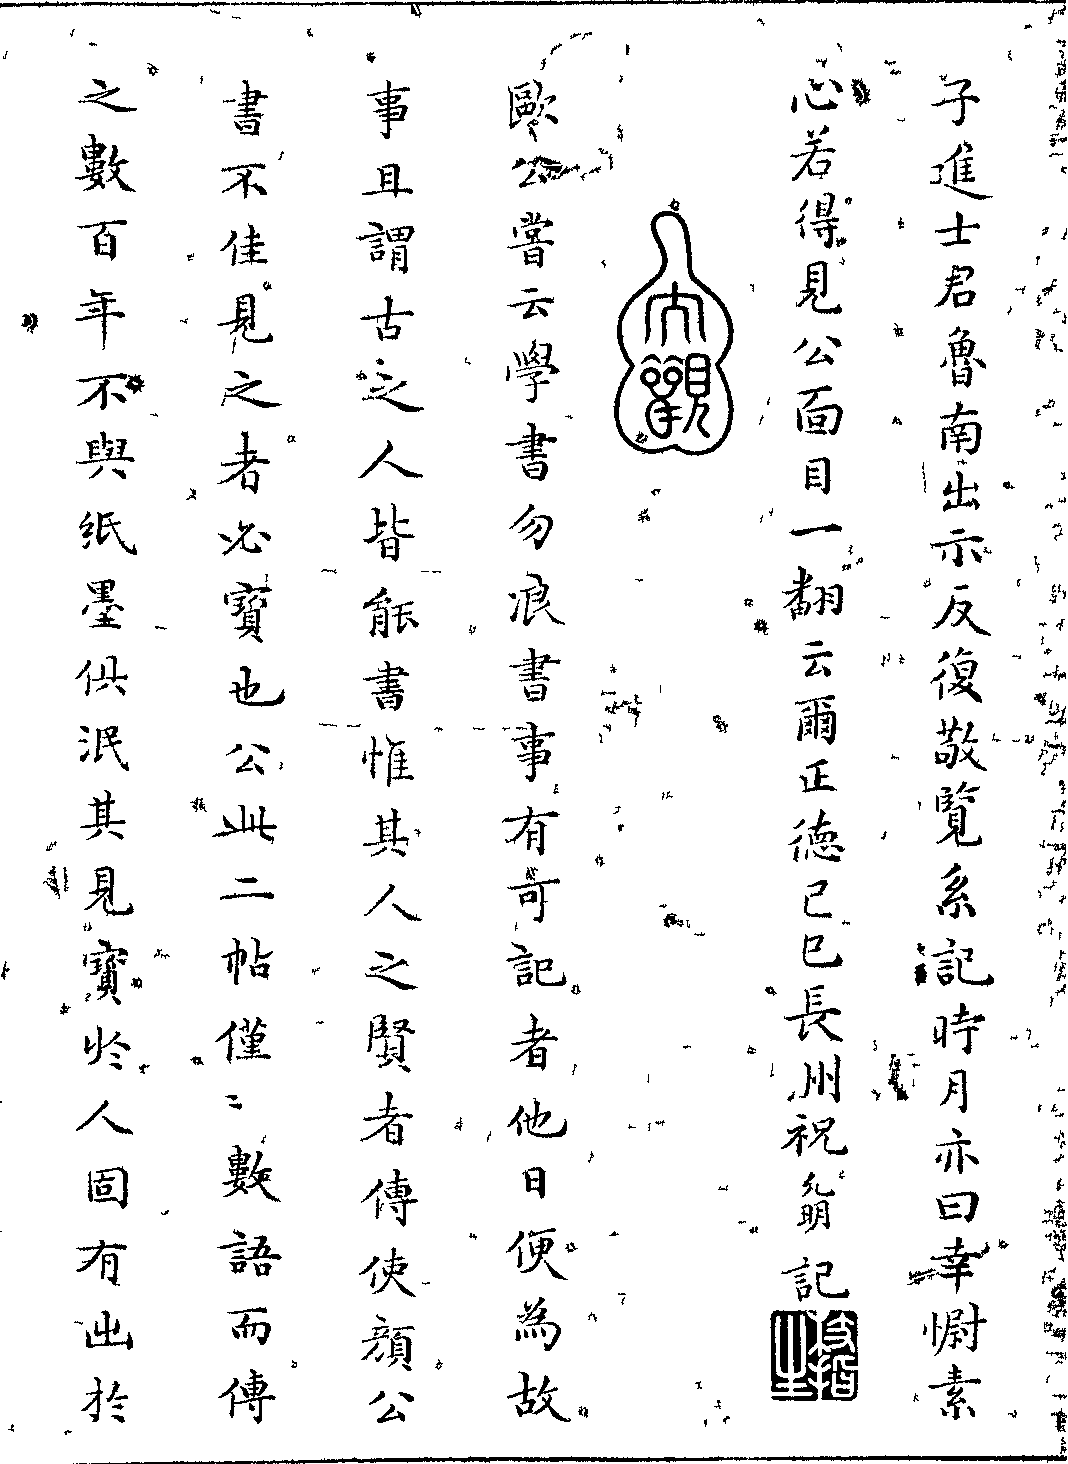 子進士君魯南出示反復敬覽系記時月亦曰幸慰素
心若得見公面目一翻云爾正德己巳長州祝允明記
枝指生
大觀
歐公嘗云學書勿浪書事有可記者他日便為故
事且謂古之人皆能書惟其人之賢者傳使顏公
書不佳見之者必寶也公此二帖僅〻數語而傳
之數百年不與紙墨俱泯其見寶於人固有出於